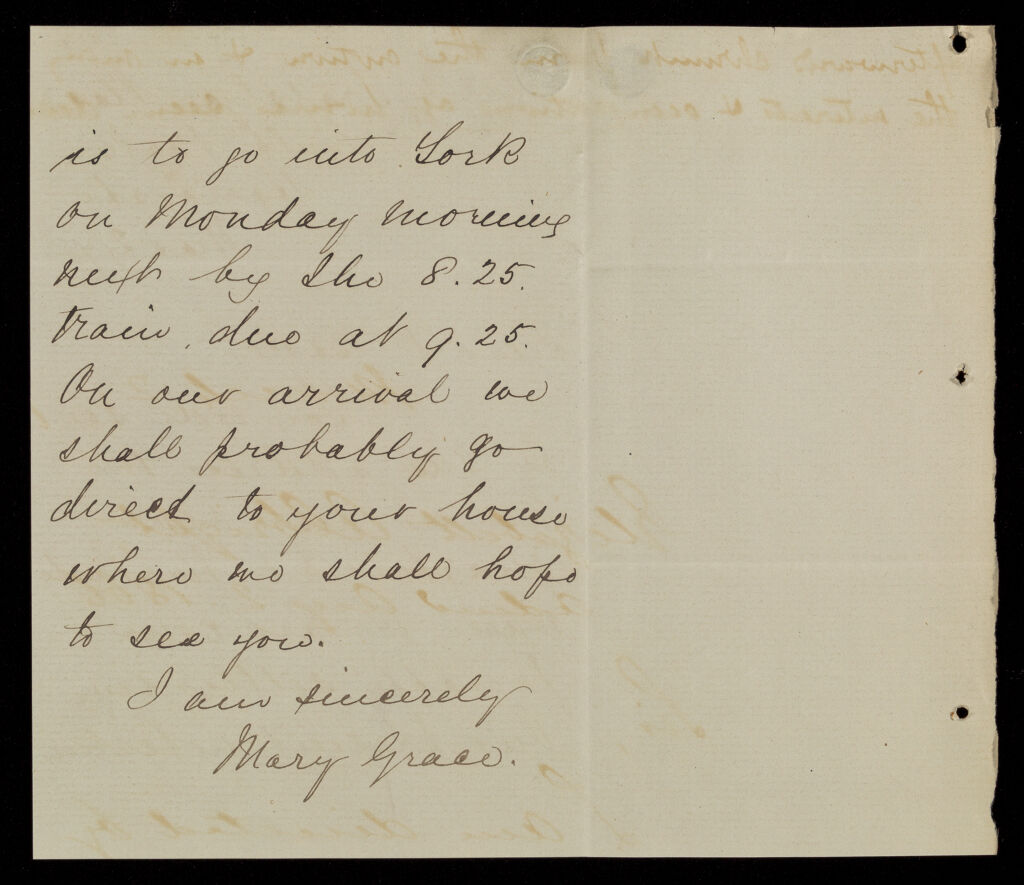 is to go into York
on Monday morning
next by the 8.25.
train, due at 9.25.
On our arrival we
shall probably go
direct to your house
where we shall hope
to see you.
I am sincerely
Mary Grace.